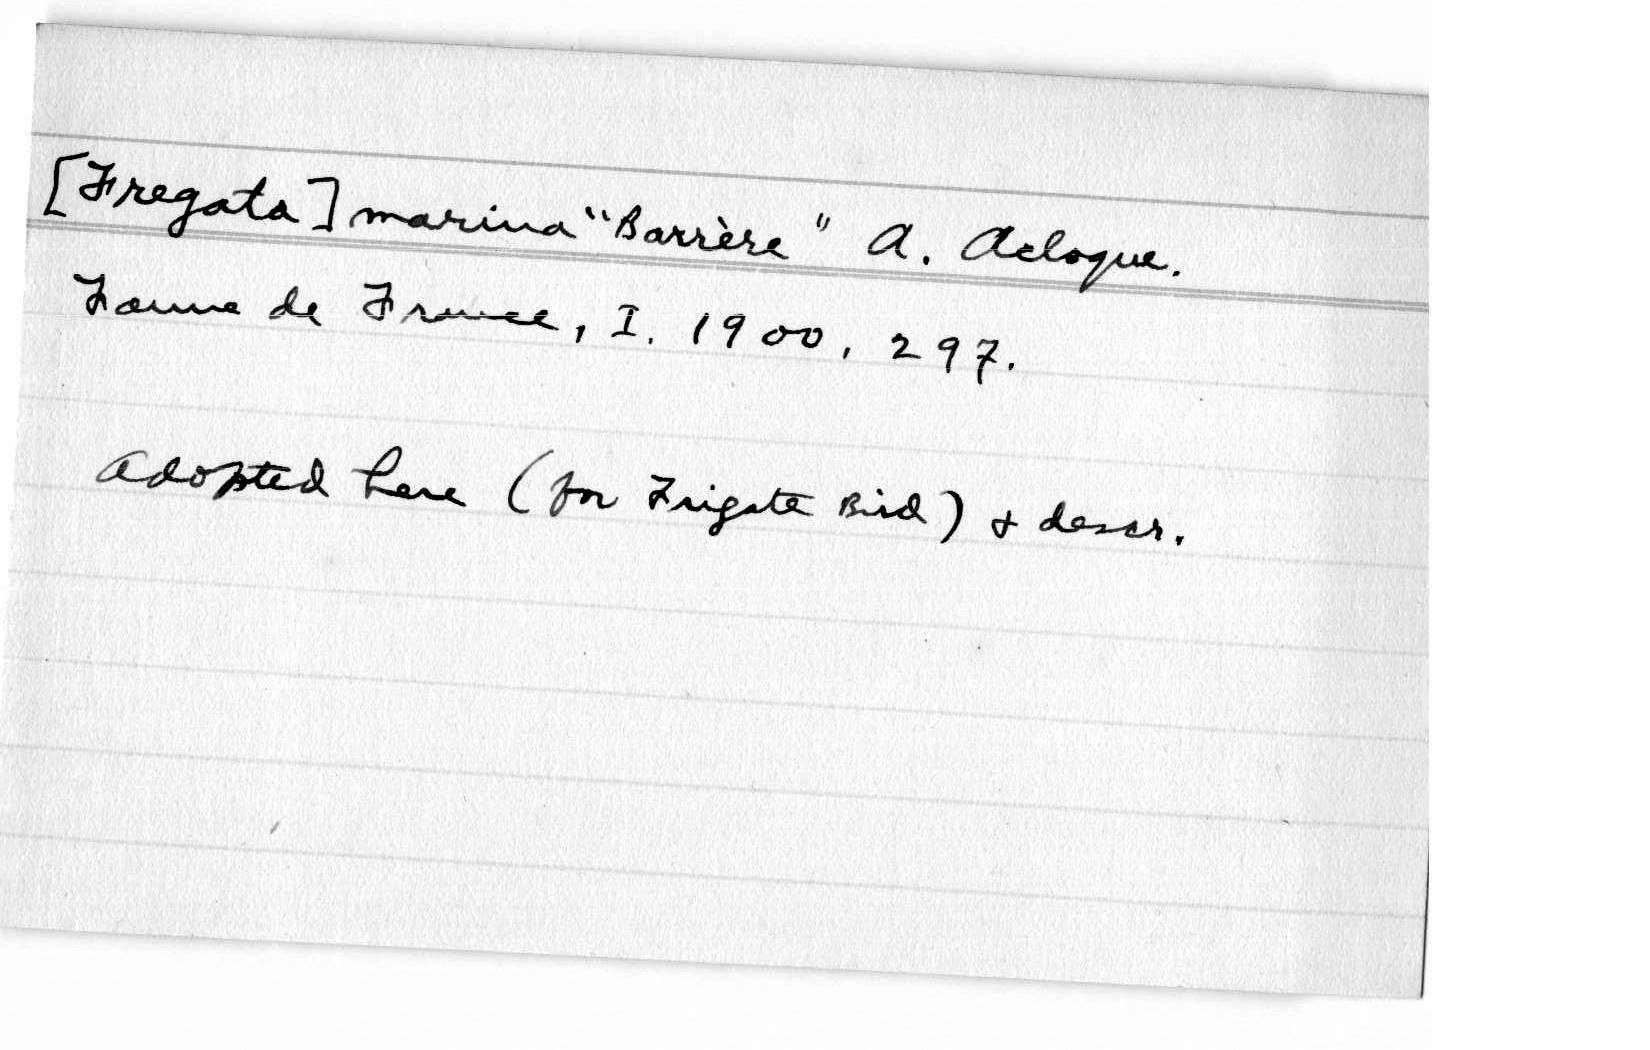 [Fregata] marina "Barrère" A. Acloque.
Faune de France, I. 1900, 297.
Adopted here (for Frigate Bird) & descr.